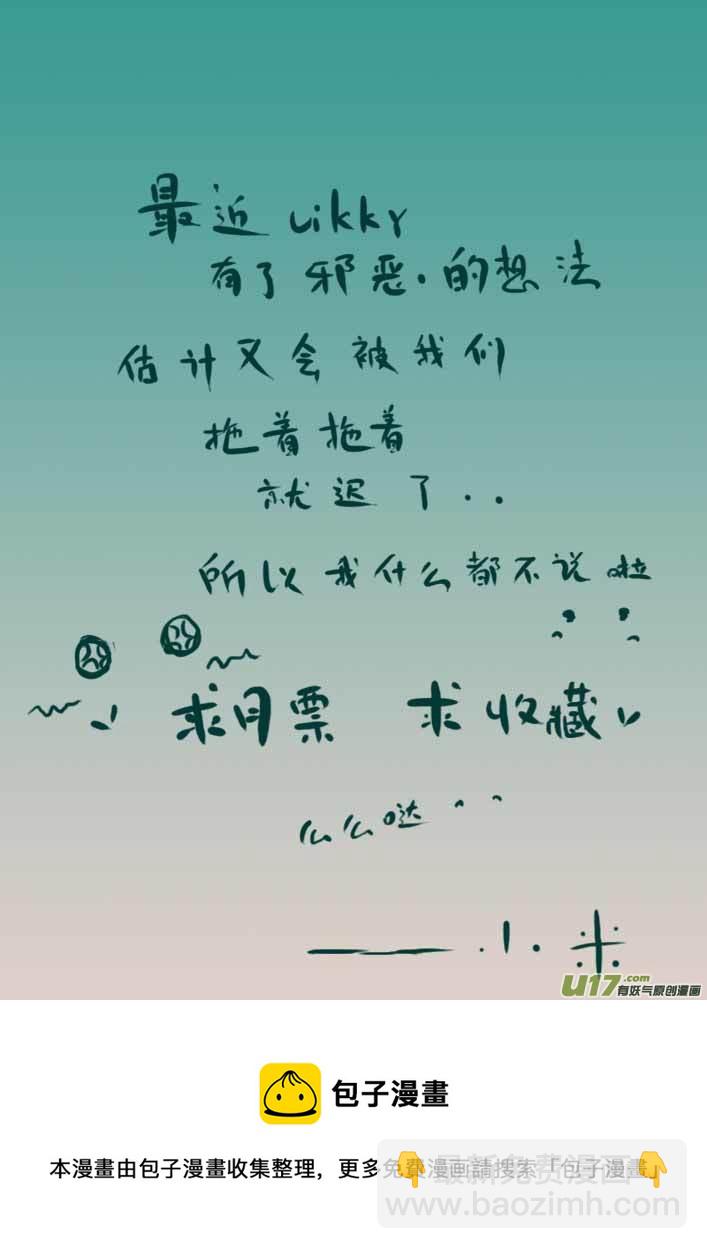 最近 likky
有了邪恶.的想法
估计又会被我们
拖着拖着
就迟了..
所以我什么都不说啦
求月票 求收藏
么么哒
——.小.米
U17.com
有妖气原创漫画
包子漫畫
本漫畫由包子漫畫收集整理，更多免費漫畫請搜索「包子漫畫」
最新免费漫画
www.baozimh.com